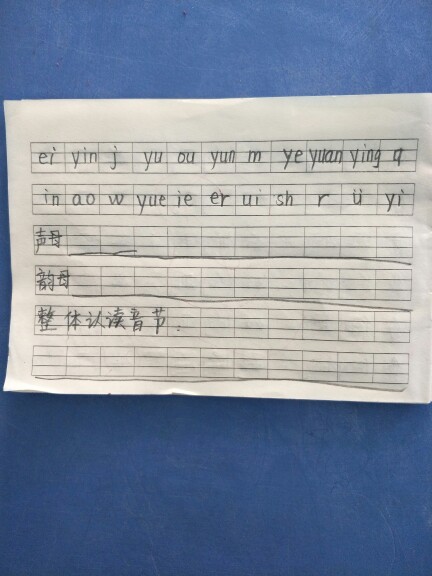 ei yin j yu ou yun m ye yuan ying q
in ao w yue ie er ui sh r ü yi
声母
韵母
整体认读音节: